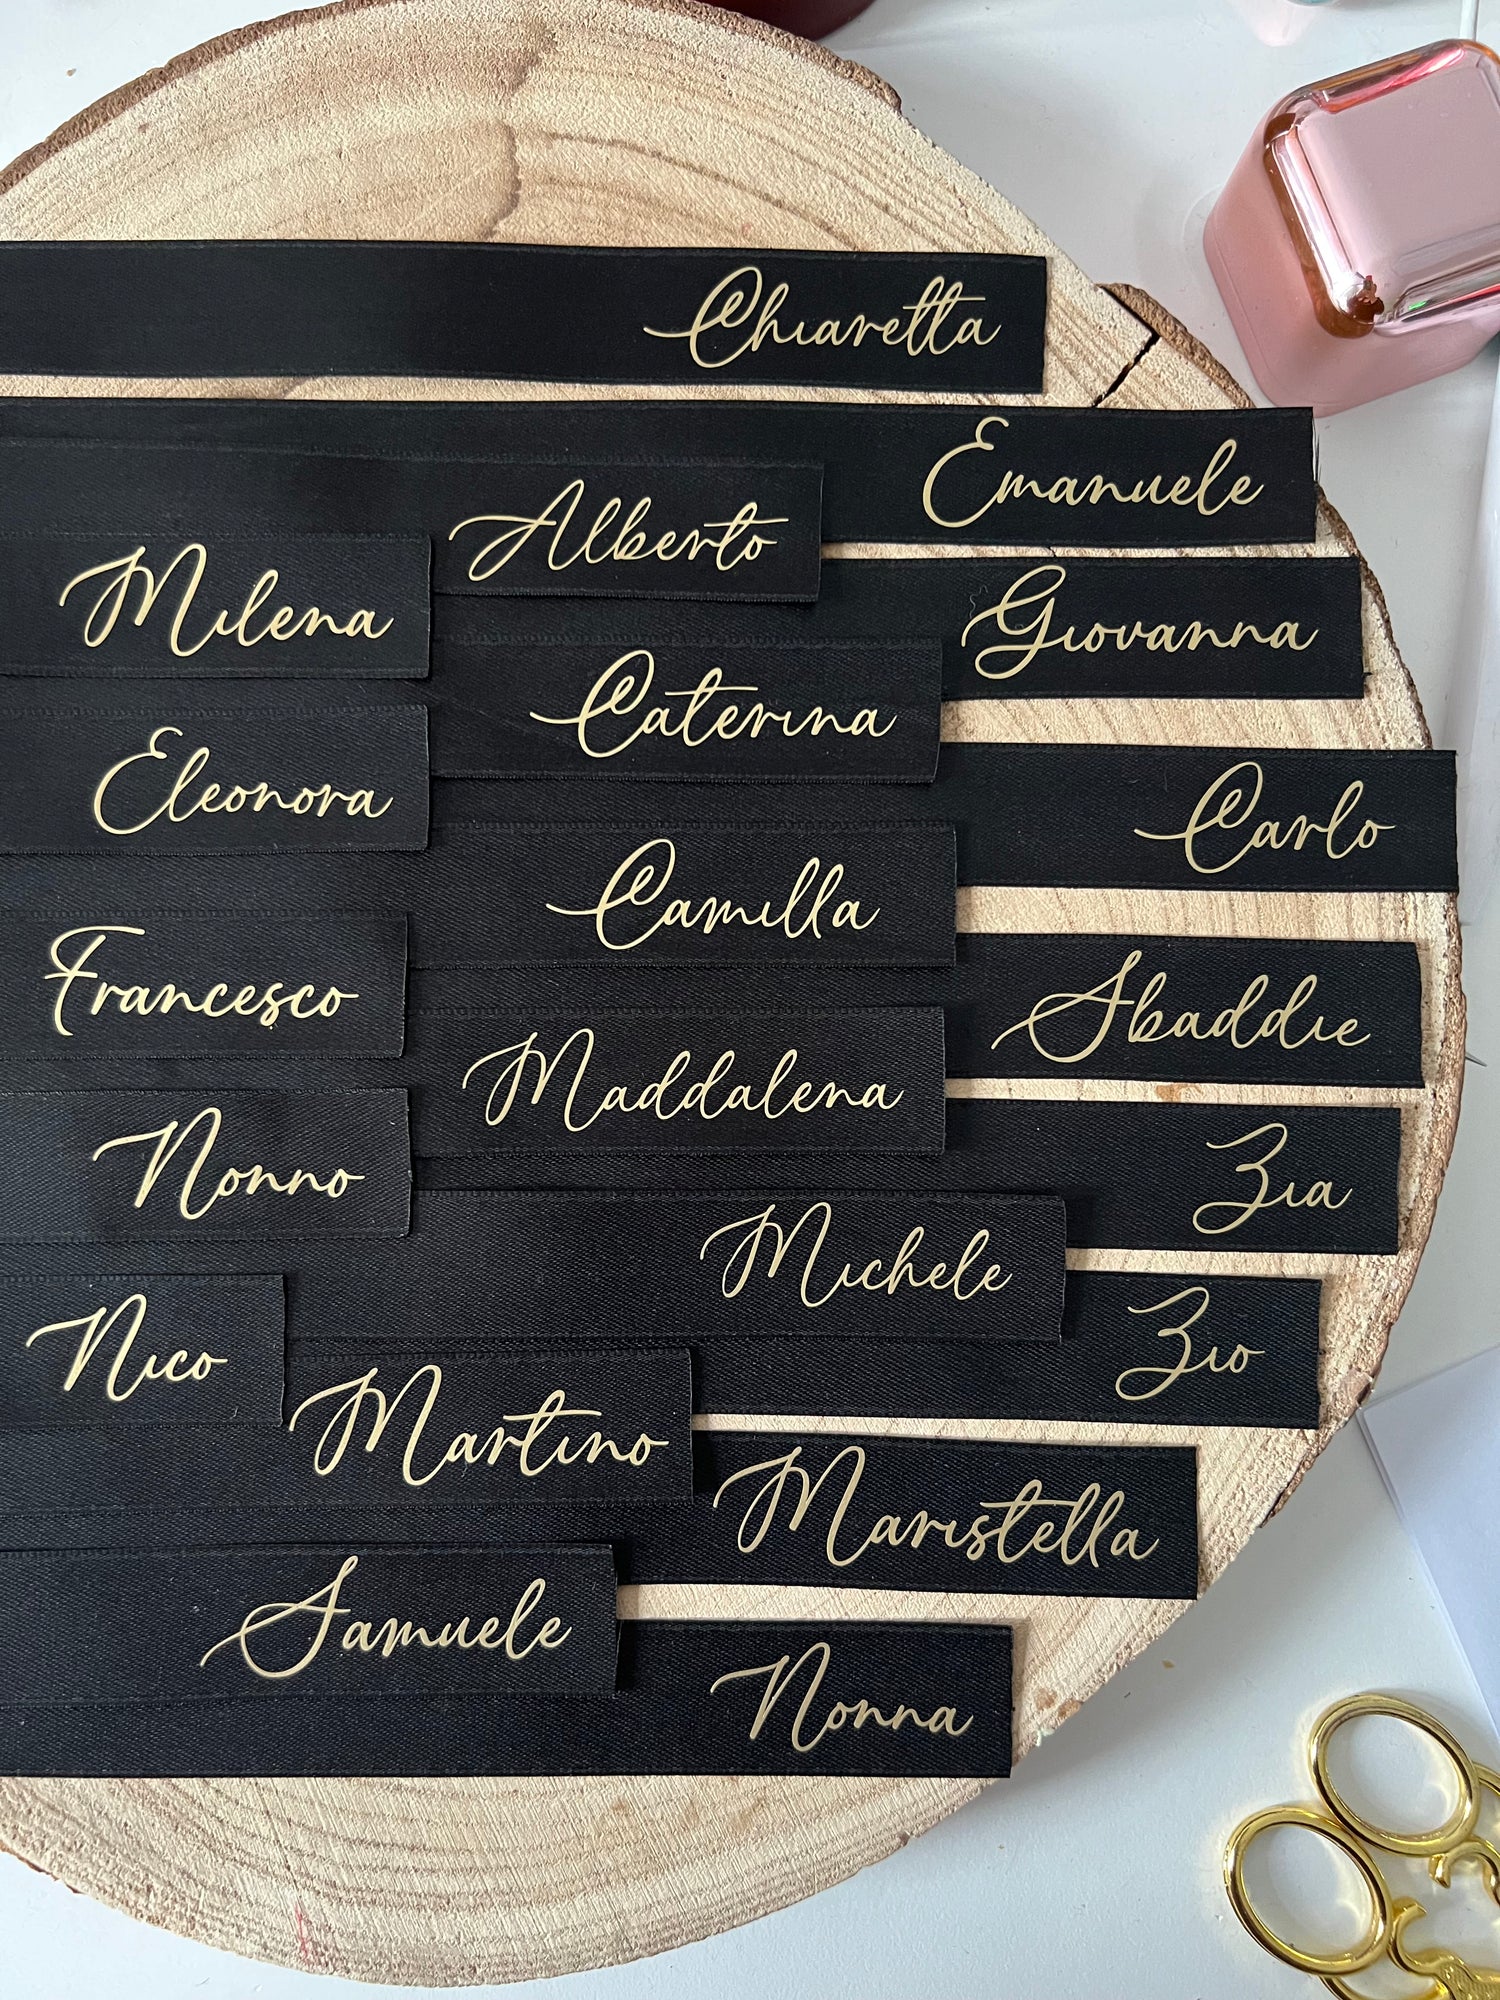 Chiaretta
Emanuele
Alberto
Milena
Giovanna
Caterina
Eleonora
Carlo
Camilla
Francesco
Sbaddie
Maddalena
Nonno
Zia
Michele
Nico
Zio
Martino
Maristella
Samuele
Nonna